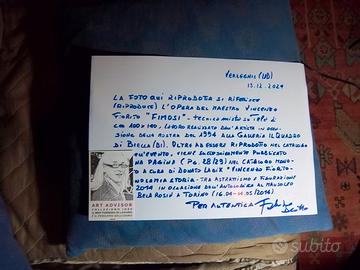 VERZEGNIS (UD)
13.12.2024
LA FOTO QUI RIPRODOTTA SI RIFERISCE
(RIPRODUCE) L'OPERA DEL MAESTRO VINCENZO
FIORITO "FIMOSI" - TECNICA MISTA SU TELA DI
CM 100X100, LAVORO REALIZZATO DALL'ARTISTA IN OCCA-
SIONE DELLA MOSTRA DEL 1994 ALLA GALLERIA IL QUADRO
DI BIELLA (BI). OLTRE AD ESSERE RIPRODOTTO NEL CATALOGO
DELL'EVENTO, VIENE SUCCESSIVAMENTE PUBBLICATO
PAGINA (PG. 28/29) NEL CATALOGO MONO-
A CURA DI DONATO "VINCENZO FIORITO-
STORIA - TRA ASTRATTISMO E FIGURAZIONE
2014 IN OCCASIONE DELL'ANTOLOGICA AL MAUSOLEO
BELA ROSIN A TORINO (16.04- .05/2014)
PER AUTENTICA
ART ADVISOR
subito